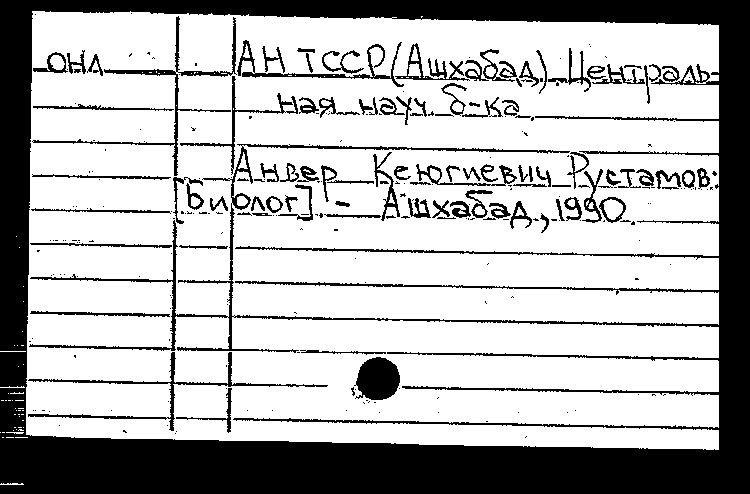 ОНЛ АН ТССР (Ашхабад). Централь-
ная науч. б-ка.
Анвер Кеюгиевич Рустамов:
[Биолог]. - Ашхабад, 1990.